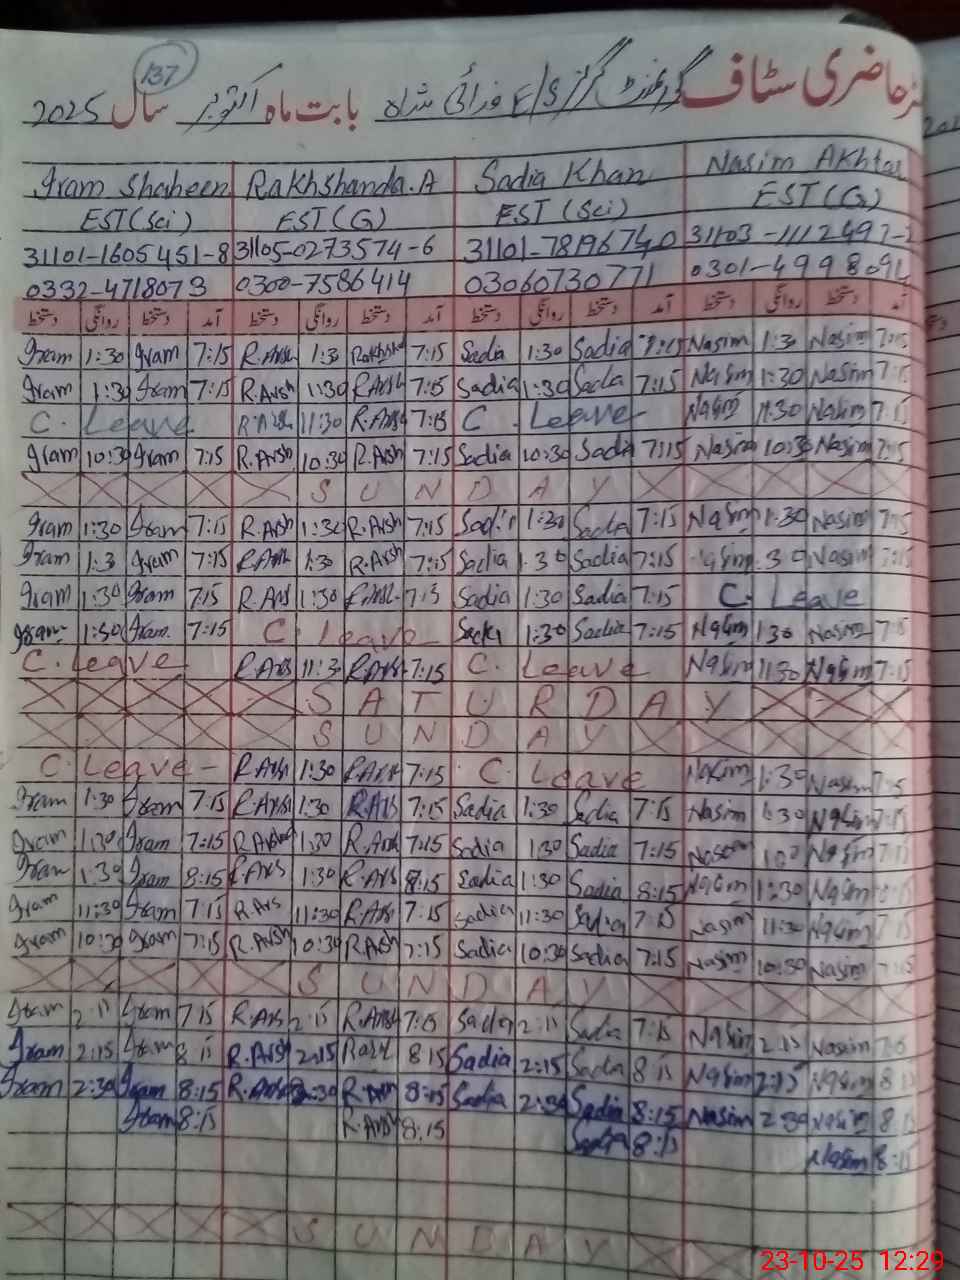 137
رجسٹر حاضری سٹاف گورنمنٹ گرلز E/S بابت ماہ اکتوبر سال 2025
Iram Shaheen Rakhshanda.A Sadia Khan Nasim Akhtar
EST(Sci) EST(G) EST(Sci) EST(G)
31101-1605451-8 31105-0273574-6
0332-4718073 0300-7586414 03060730771
دستخط روانگی دستخط آمد دستخط روانگی دستخط آمد دستخط روانگی دستخط آمد دستخط روانگی دستخط آمد
Iram 1:30 Iram 7:15 R.Arsh 1:3 7:15 Sadia 1:30 Sadia 7:15 Nasim 1:30 Nasim 7:15
Iram 1:30 Iram 7:15 R.Arsh 1:30 R.Arsh 7:15 Sadia 1:30 Sadia 7:15 Nasim 1:30 Nasim 7:15
C. Leave 11:30 R.Arsh 7:15 C. Leave Nasim 11:30 Nasim 7:15
Iram 10:30 Iram 7:15 R.Arsh 10:30 R.Arsh 7:15 Sadia 10:30 Sadia 7:15 Nasim 10:30 Nasim 7:15
SUNDAY
Iram 1:30 Iram 7:15 R.Arsh 1:30 R.Arsh 7:15 Sadia 1:30 Sadia 7:15 Nasim 1:30 Nasim 7:15
Iram 1:3 Iram 7:15 R.Arsh 1:30 R.Arsh 7:15 Sadia 1:30 Sadia 7:15 Nasim 1:30 Nasim 7:15
Iram 1:30 Iram 7:15 R.Ars 1:30 Sadia 1:30 Sadia 7:15 C. Leave
Iram 1:30 Iram 7:15 C. Leave 1:30 Sadia 7:15 Nasim 1:30 Nasim 7:15
C. Leave R.Ars 11:3 R.Ars 7:15 C. Leave Nasim 11:30 Nasim 7:15
SATURDAY
SUNDAY
C. Leave R.Arsh 1:30 R.Arsh 7:15 C. Leave Nasim 1:30 Nasim
Iram 1:30 Iram 7:15 R.Arsh 1:30 R.Ars 7:15 Sadia 1:30 Sadia 7:15 Nasim 1:30 Nasim 7:15
Iram 1:30 Iram 7:15 R.Arsh 1:30 R.Arsh 7:15 Sadia 1:30 Sadia 7:15 Nasim 7:15
Iram 1:30 Iram 8:15 R.Ars 1:30 R.Ars 8:15 Sadia 1:30 Sadia 8:15 Nasim 1:30 Nasim 8:15
Iram 11:30 Iram 7:15 R.Ars 11:30 R.Ars 7:15 Sadia 11:30 Sadia 7:15 Nasim 11:30 Nasim 7:15
Iram 10:30 Iram 7:15 R.Arsh 10:30 R.Arsh 7:15 Sadia 10:30 Sadia 7:15 Nasim 10:30 Nasim 7:15
SUNDAY
Iram 2:15 Iram 7:15 R.Ars 2:15 R.Ars 7:15 Sadia 2:15 Sadia 7:15 Nasim 2:15 Nasim
Iram 2:15 Iram 8:15 R.Arsh 2:15 8:15 Sadia 2:15 Sadia 8:15 Nasim 2:15 Nasim 8:15
Iram 2:30 Iram 8:15 R.Arsh 2:30 8:15 Sadia 2:30 Sadia 8:15 Nasim 2:30 Nasim 8:15
Iram 8:15 R.Arsh 8:15 Sadia 8:15 Nasim 8:15
SUNDAY
23-10-25 12:29